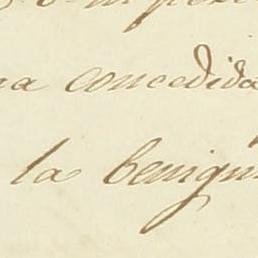 na concedida
la benign